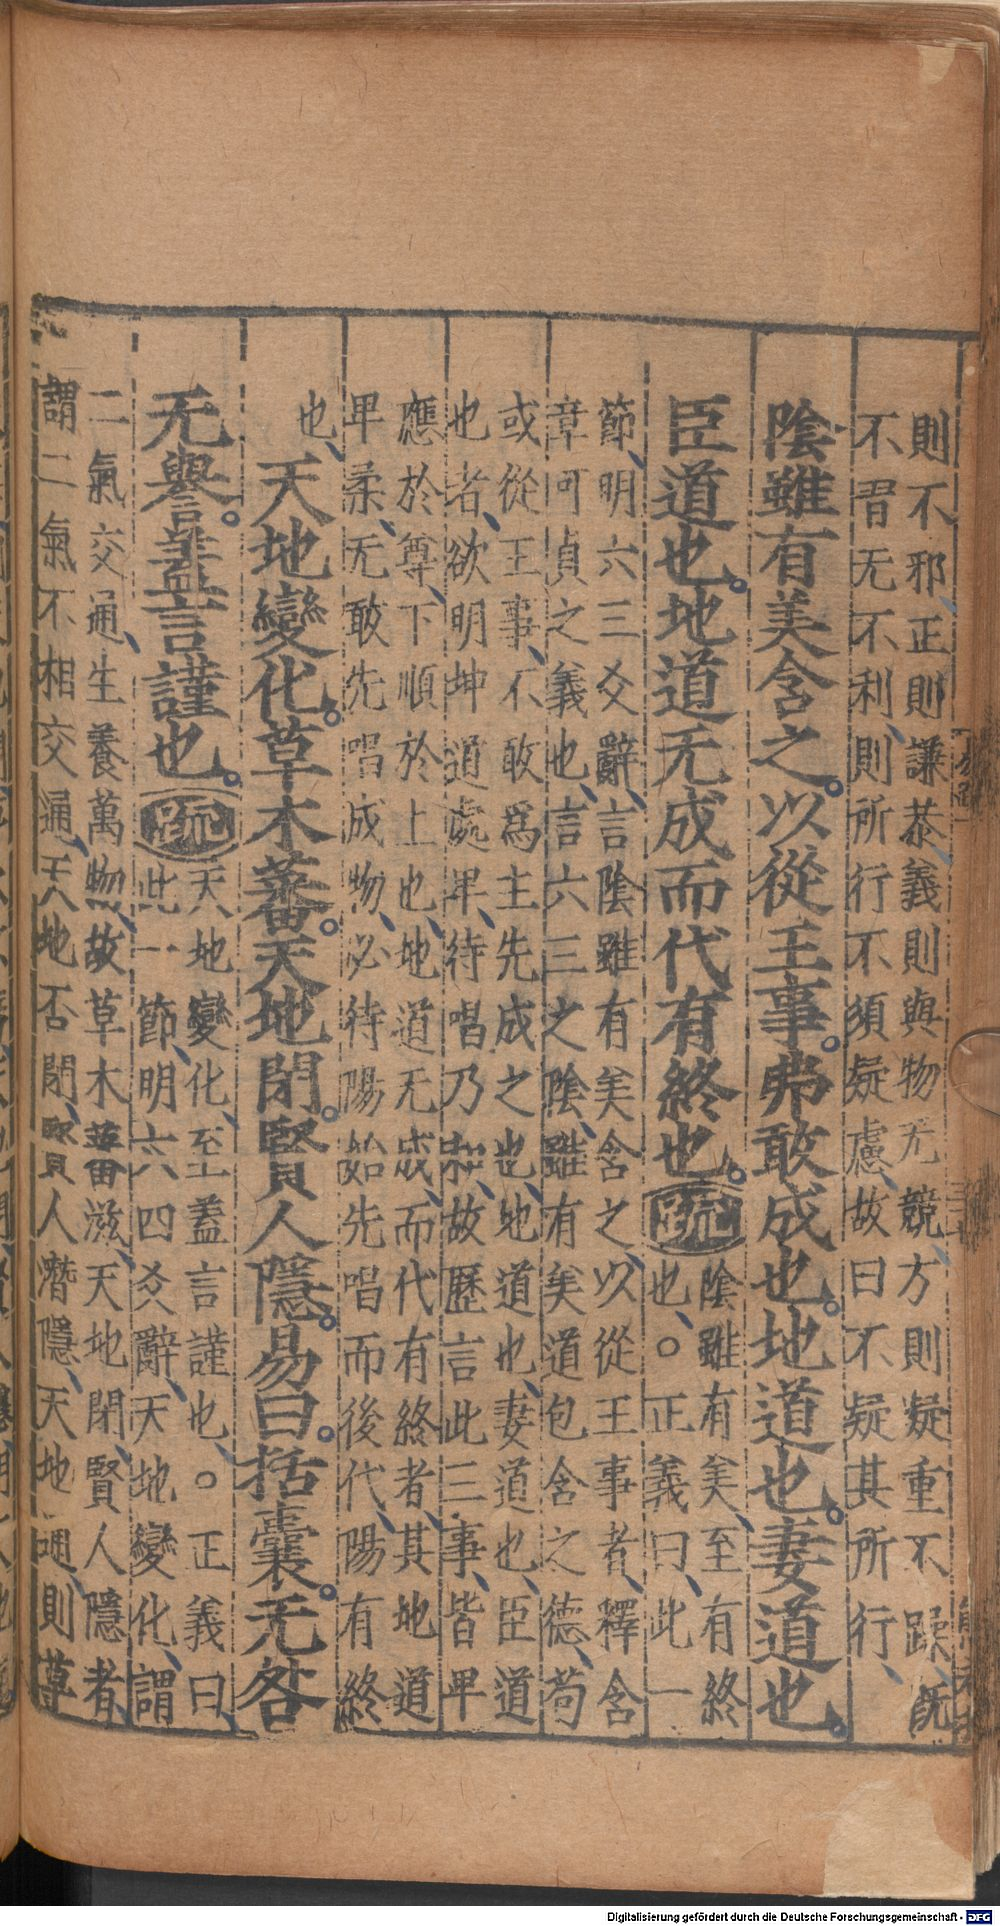 則不邪正則謙恭義則與物无競方則疑重不躁既
不習无不利則所行不須疑慮故曰不疑其所行
陰雖有美含之以從王事弗敢成也地道也妻道也
臣道也地道无成而代有終也
疏
陰雖有美至有終
也○正義曰此一
節明六三爻辭言陰雖有美含之以從王事者釋含
章可貞之義也言六三之陰雖有美道包含之德苟
或從王事不敢爲主先成之也地道也妻道也臣道
也者欲明坤道處卑待唱乃和故歷言此三事皆卑
應於尊下順於上也地道无成而代有終者其地道
卑柔无敢先唱成物必待陽始先唱而後代陽有終
也
天地變化草木蕃天地閉賢人隱易曰括囊无咎
无譽蓋言謹也
疏
天地變化至蓋言謹也○正義曰
此一節明六四爻辭天地變化謂
二氣交通生養萬物故草木蕃滋天地閉賢人隱者
謂二氣不相交通天地否閉賢人潛隱天地通則草
Digitalisierung gefördert durch die Deutsche Forschungsgemeinschaft - DFG